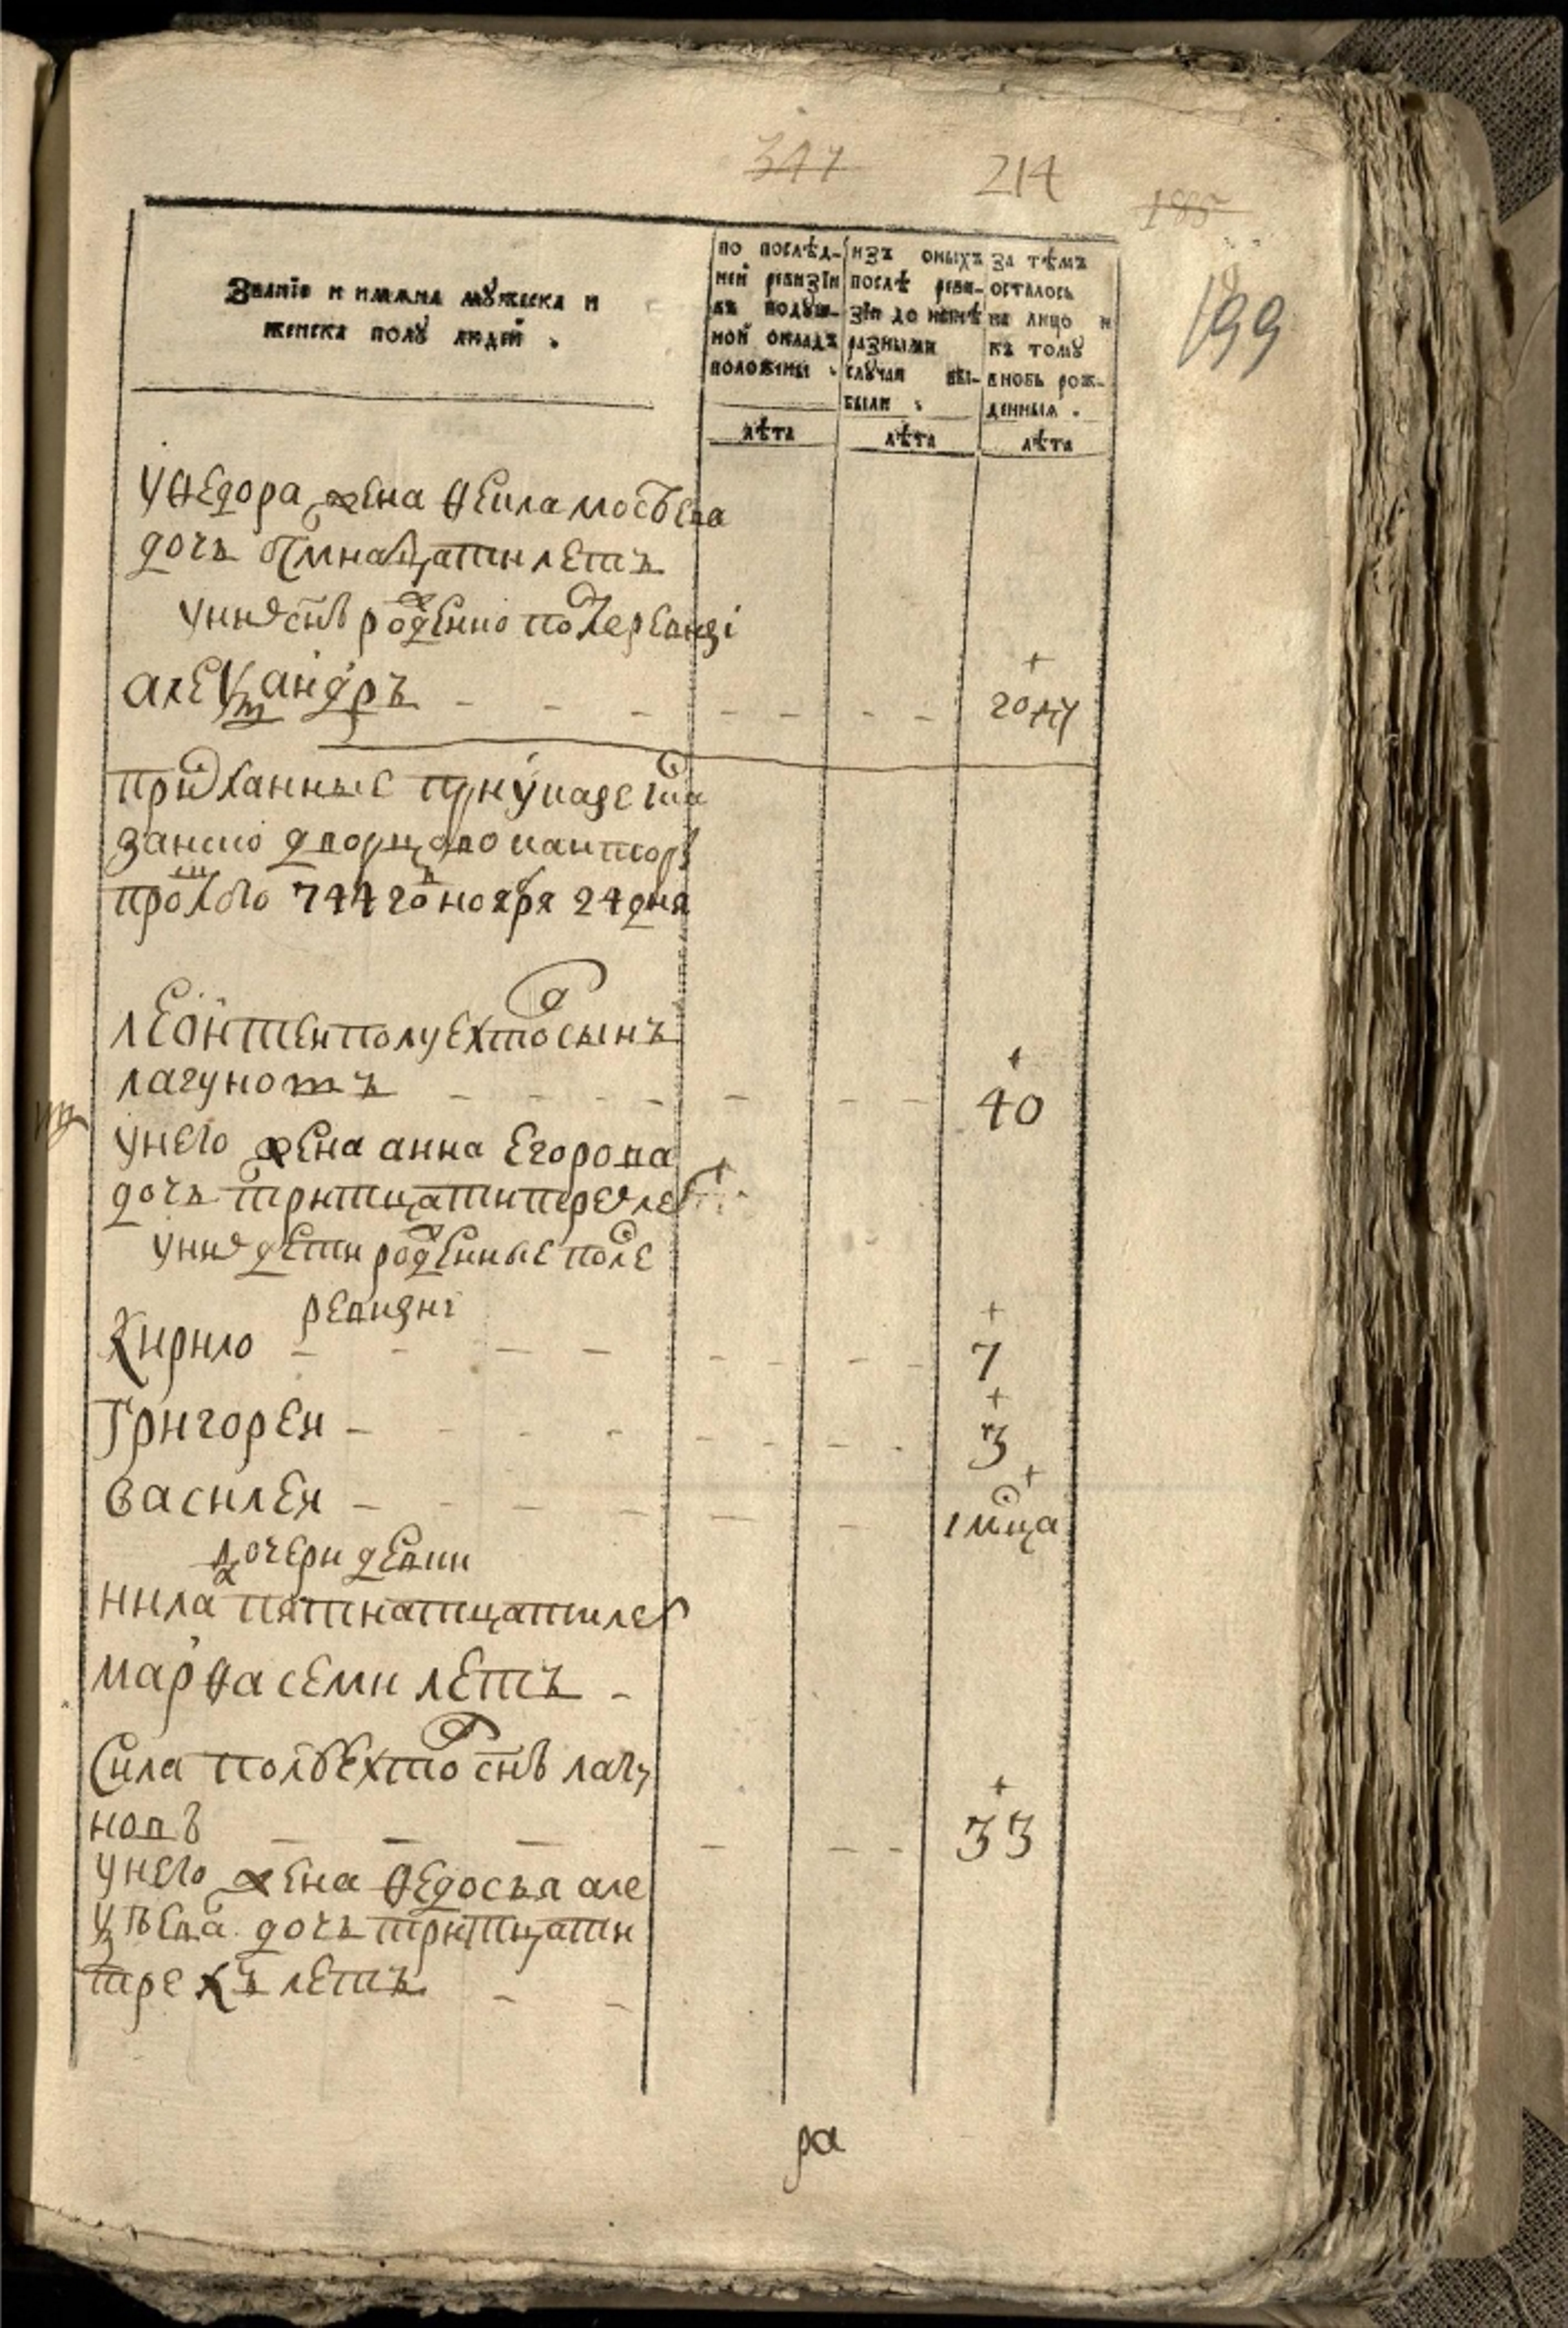 347 214 185
199
Званїе и имяна мꙋжеска и
женска полꙋ людей .
по послѣд-
ней ревизїи
въ подꙋш-
ной окладъ
положены .
изъ оныхъ
послѣ реви-
зїи до нынѣ
разными
слꙋчаи вы-
были .
за тѣмъ
осталось
на лицо и
къ томꙋ
вновь рож-
денныя .
лѣта лѣта лѣта
у ѳедора жена ѳекла мосѣева
дочь осмнатцати летъ
у них снъ рожденно после ревизи
александръ году
присланные при указе ис ка
занско дворцово кантор
прошлого 744 го ноября 24 дня
леонтеи полуехтов сынъ
лагуновъ 40
у него жена анна егорова
дочь тритцати трех лет
у них дети рожденные после
ревизиі
кирило 7
григореи 3
василеи 1 мсца
дочери девки
нила пятнатцати лет
марѳа семи летъ
сила полꙋехтов снъ лагу
новъ 33
у него жена ѳедосья але
ксѣева дочь тритцати
трехъ летъ
ра